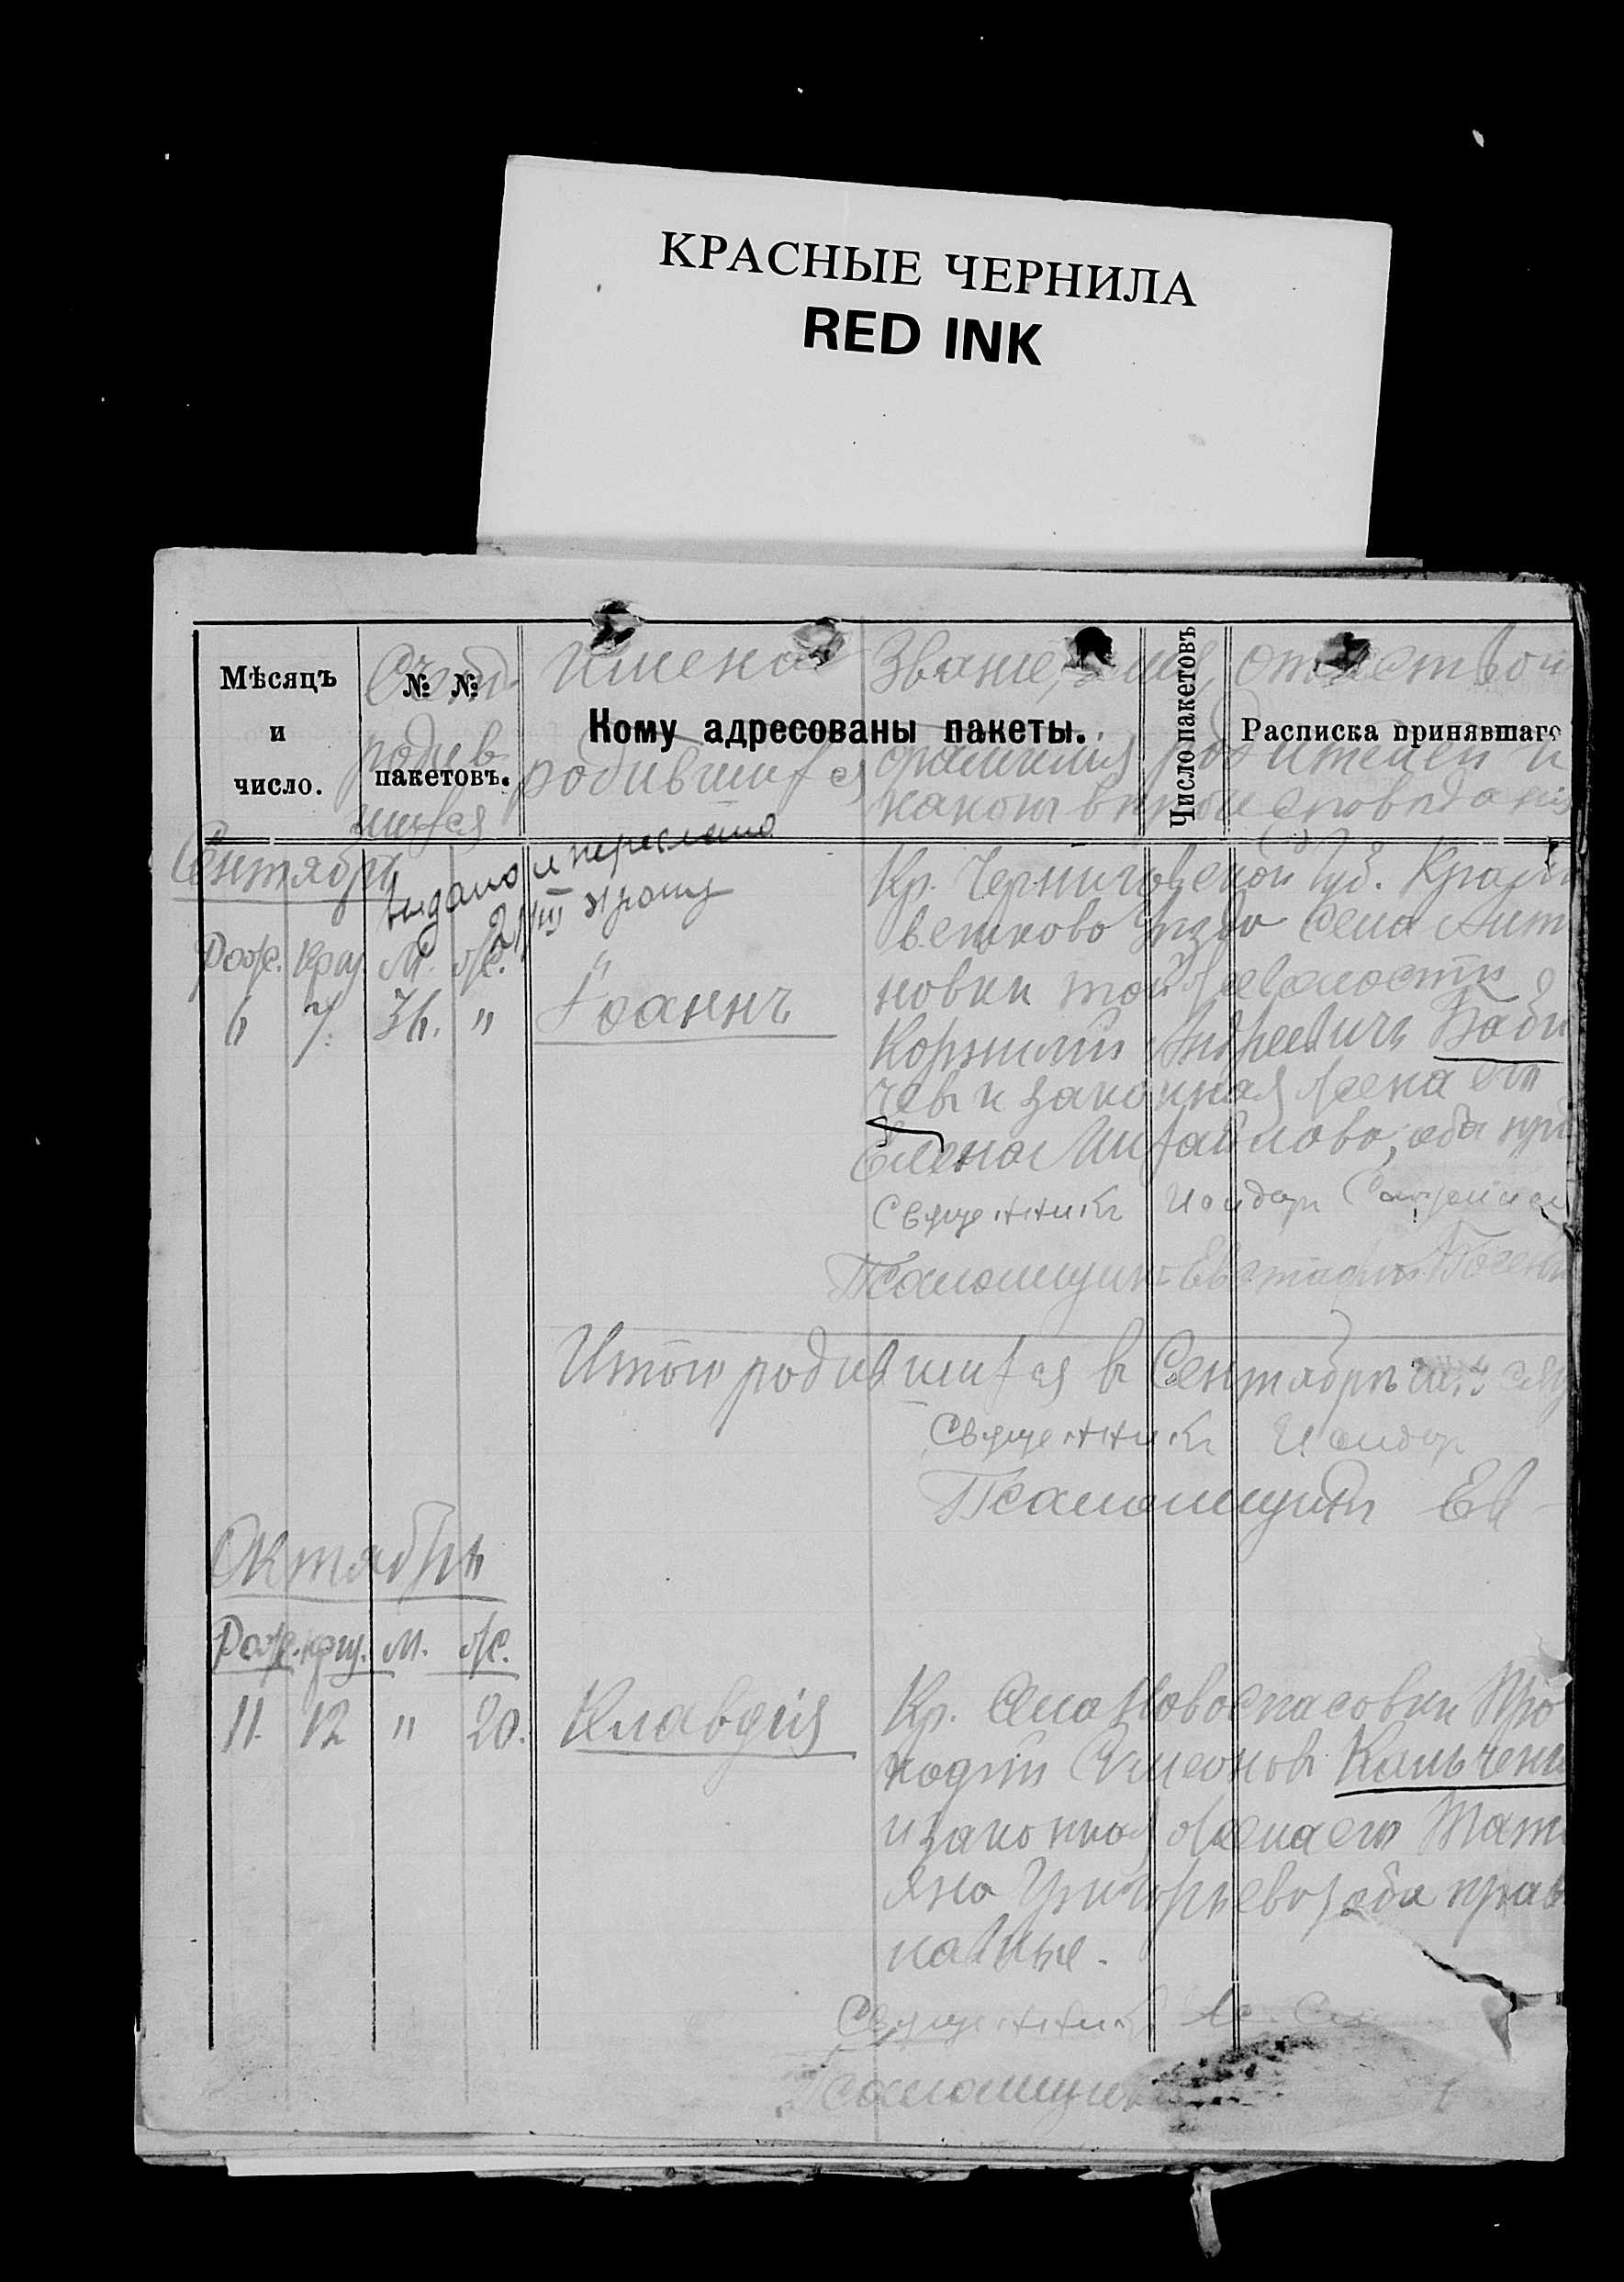 КРАСНЫЕ ЧЕРНИЛА
RED INK
Мѣсяцъ
и
число.
№ №
пакетовъ.
Кому адресованы пакеты.
Число пакетовъ
Расписка принявшаго
Счет
родив
шихся
Имена
родившихся
Званіе, имя, отчество и
фамилія родителей и
какого вѣроисповѣданія
Сентябрь
выдано и переслано
Рож. Крщ. М. Ж.
6 7. 36. "
Іоаннъ
Кр. Черниговской губ.
села
новки той же волости
Корнилій Андреевичъ Баби
чевъ и законная жена его
Елена Михайлова, оба пра
Священникъ
Псаломщикъ Евстафій
Итого родившихся въ Сентябрѣ
Священникъ
Псаломщикъ Ев
Октябрь
Рож. крщ. М. Ж.
11. 12 " 20.
Клавдія
Кр. села Новоспасовки Про
кодій Симеоновъ Кальчен
и законная жена его Тат
яна Григорьева, оба прав
лавные.
Священникъ
Псаломщикъ